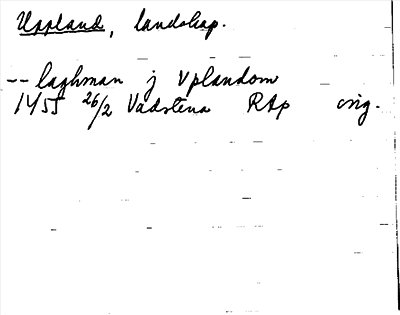 Uppland, landskap.
-- laghman j Vplandom
1455 26/2 Vadstena RAp orig.